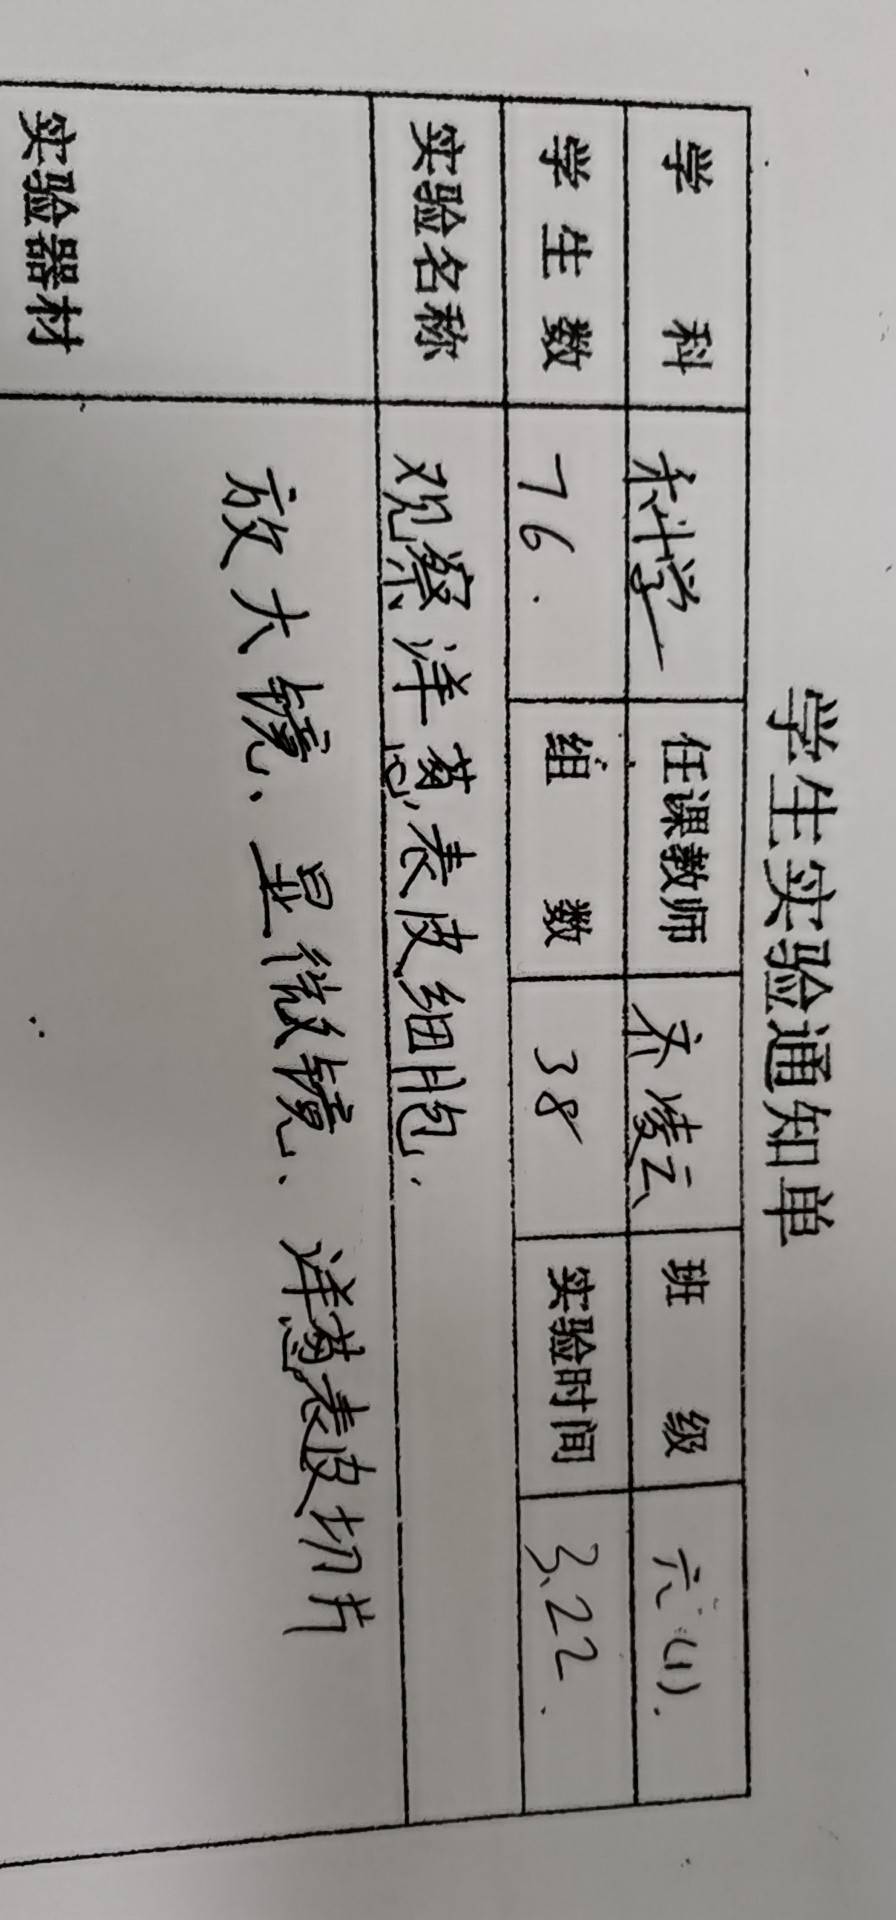 学生实验通知单
学科 科学 任课教师 齐凌云 班级 六(1).
学生数 76. 组数 38 实验时间 3.22.
实验名称 观察洋葱表皮细胞.
实验器材 放大镜、显微镜、洋葱表皮切片